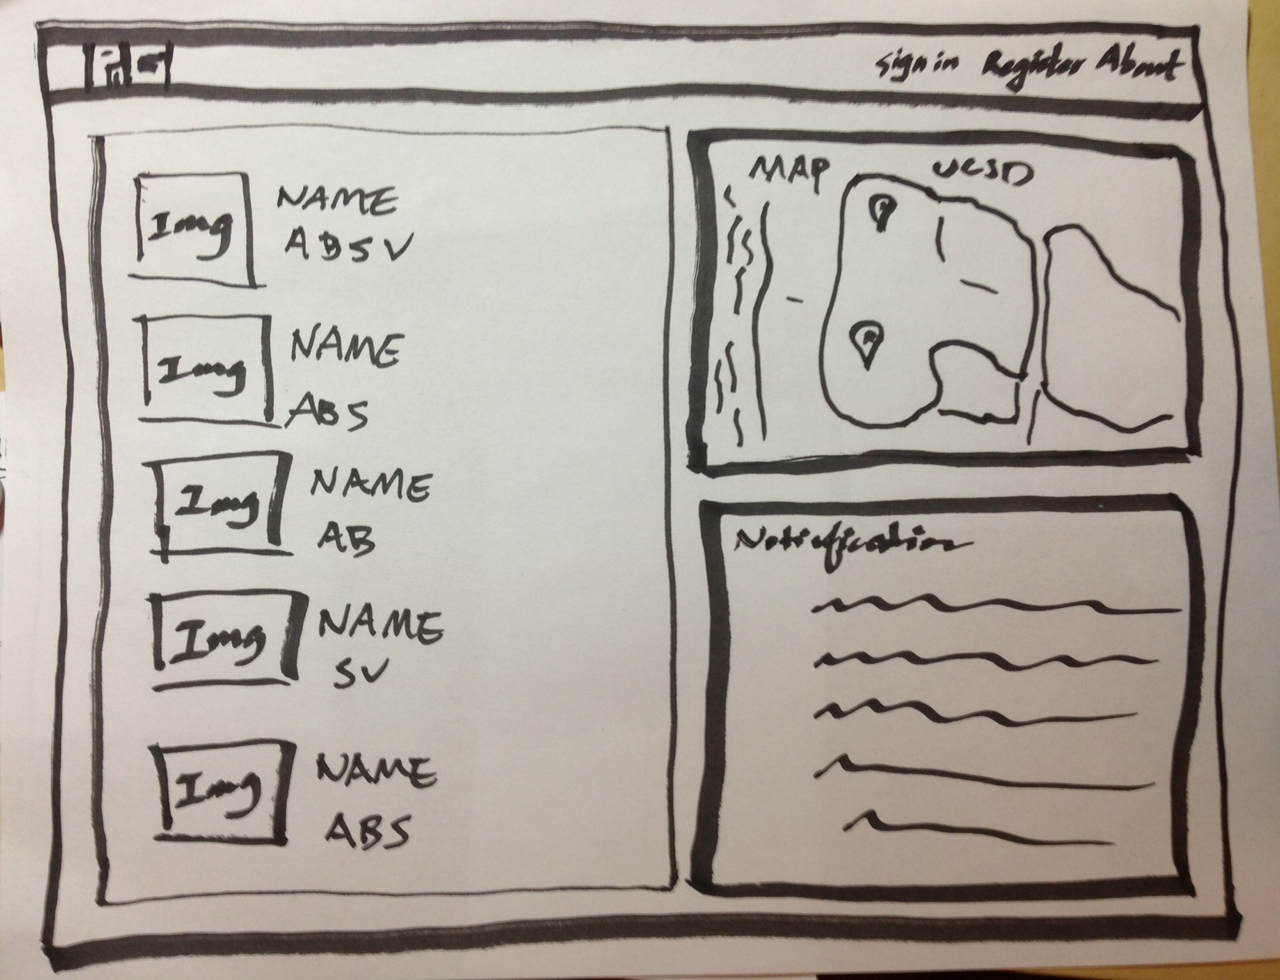 Sign in Register About
Img
NAME
ABSV
Img
NAME
ABS
Img
NAME
AB
Img
NAME
SV
Img
NAME
ABS
MAP UCSD
Notification